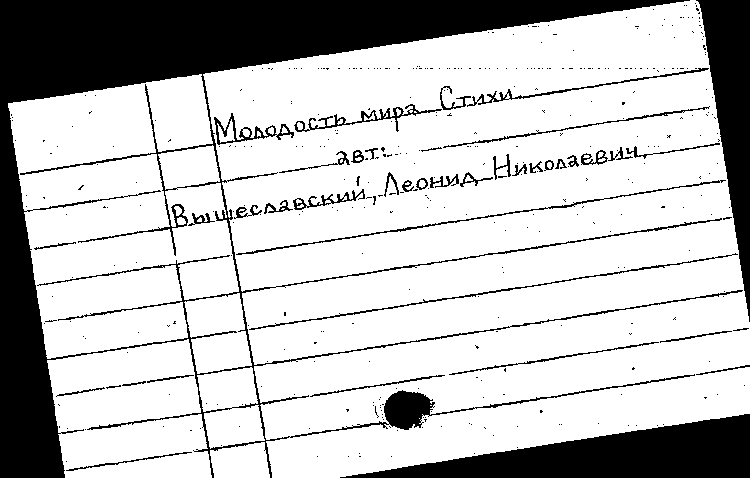 Молодость мира Стихи.
авт:
Вышеславский, Леонид Николаевич.